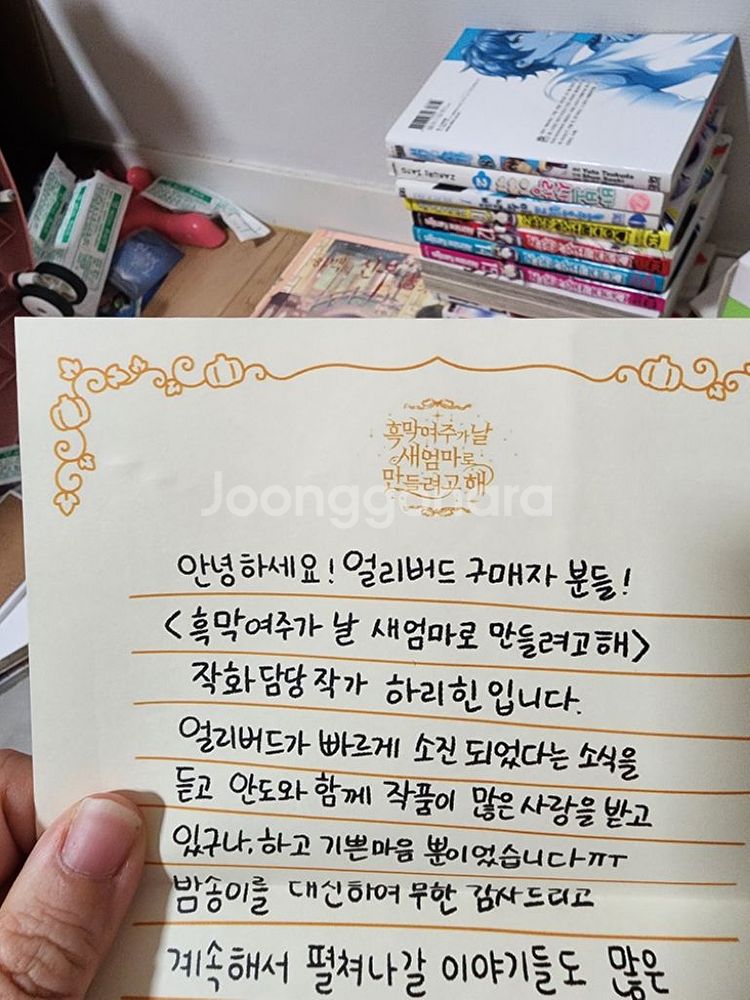 Yuto Tsukuda
흑막여주가 날
새엄마로
만들려고 해
Joonggonara
안녕하세요! 얼리버드 구매자 분들!
<흑막여주가 날 새엄마로 만들려고해>
작화담당작가 하리힌입니다.
얼리버드가 빠르게 소진 되었다는 소식을
듣고 안도와 함께 작품이 많은사랑을 받고
있구나.하고 기쁜마음 뿐이었습니다ㅠㅠ
밤송이를 대신하여 무한 감사드리고
계속해서 펼쳐나갈 이야기들도 많은